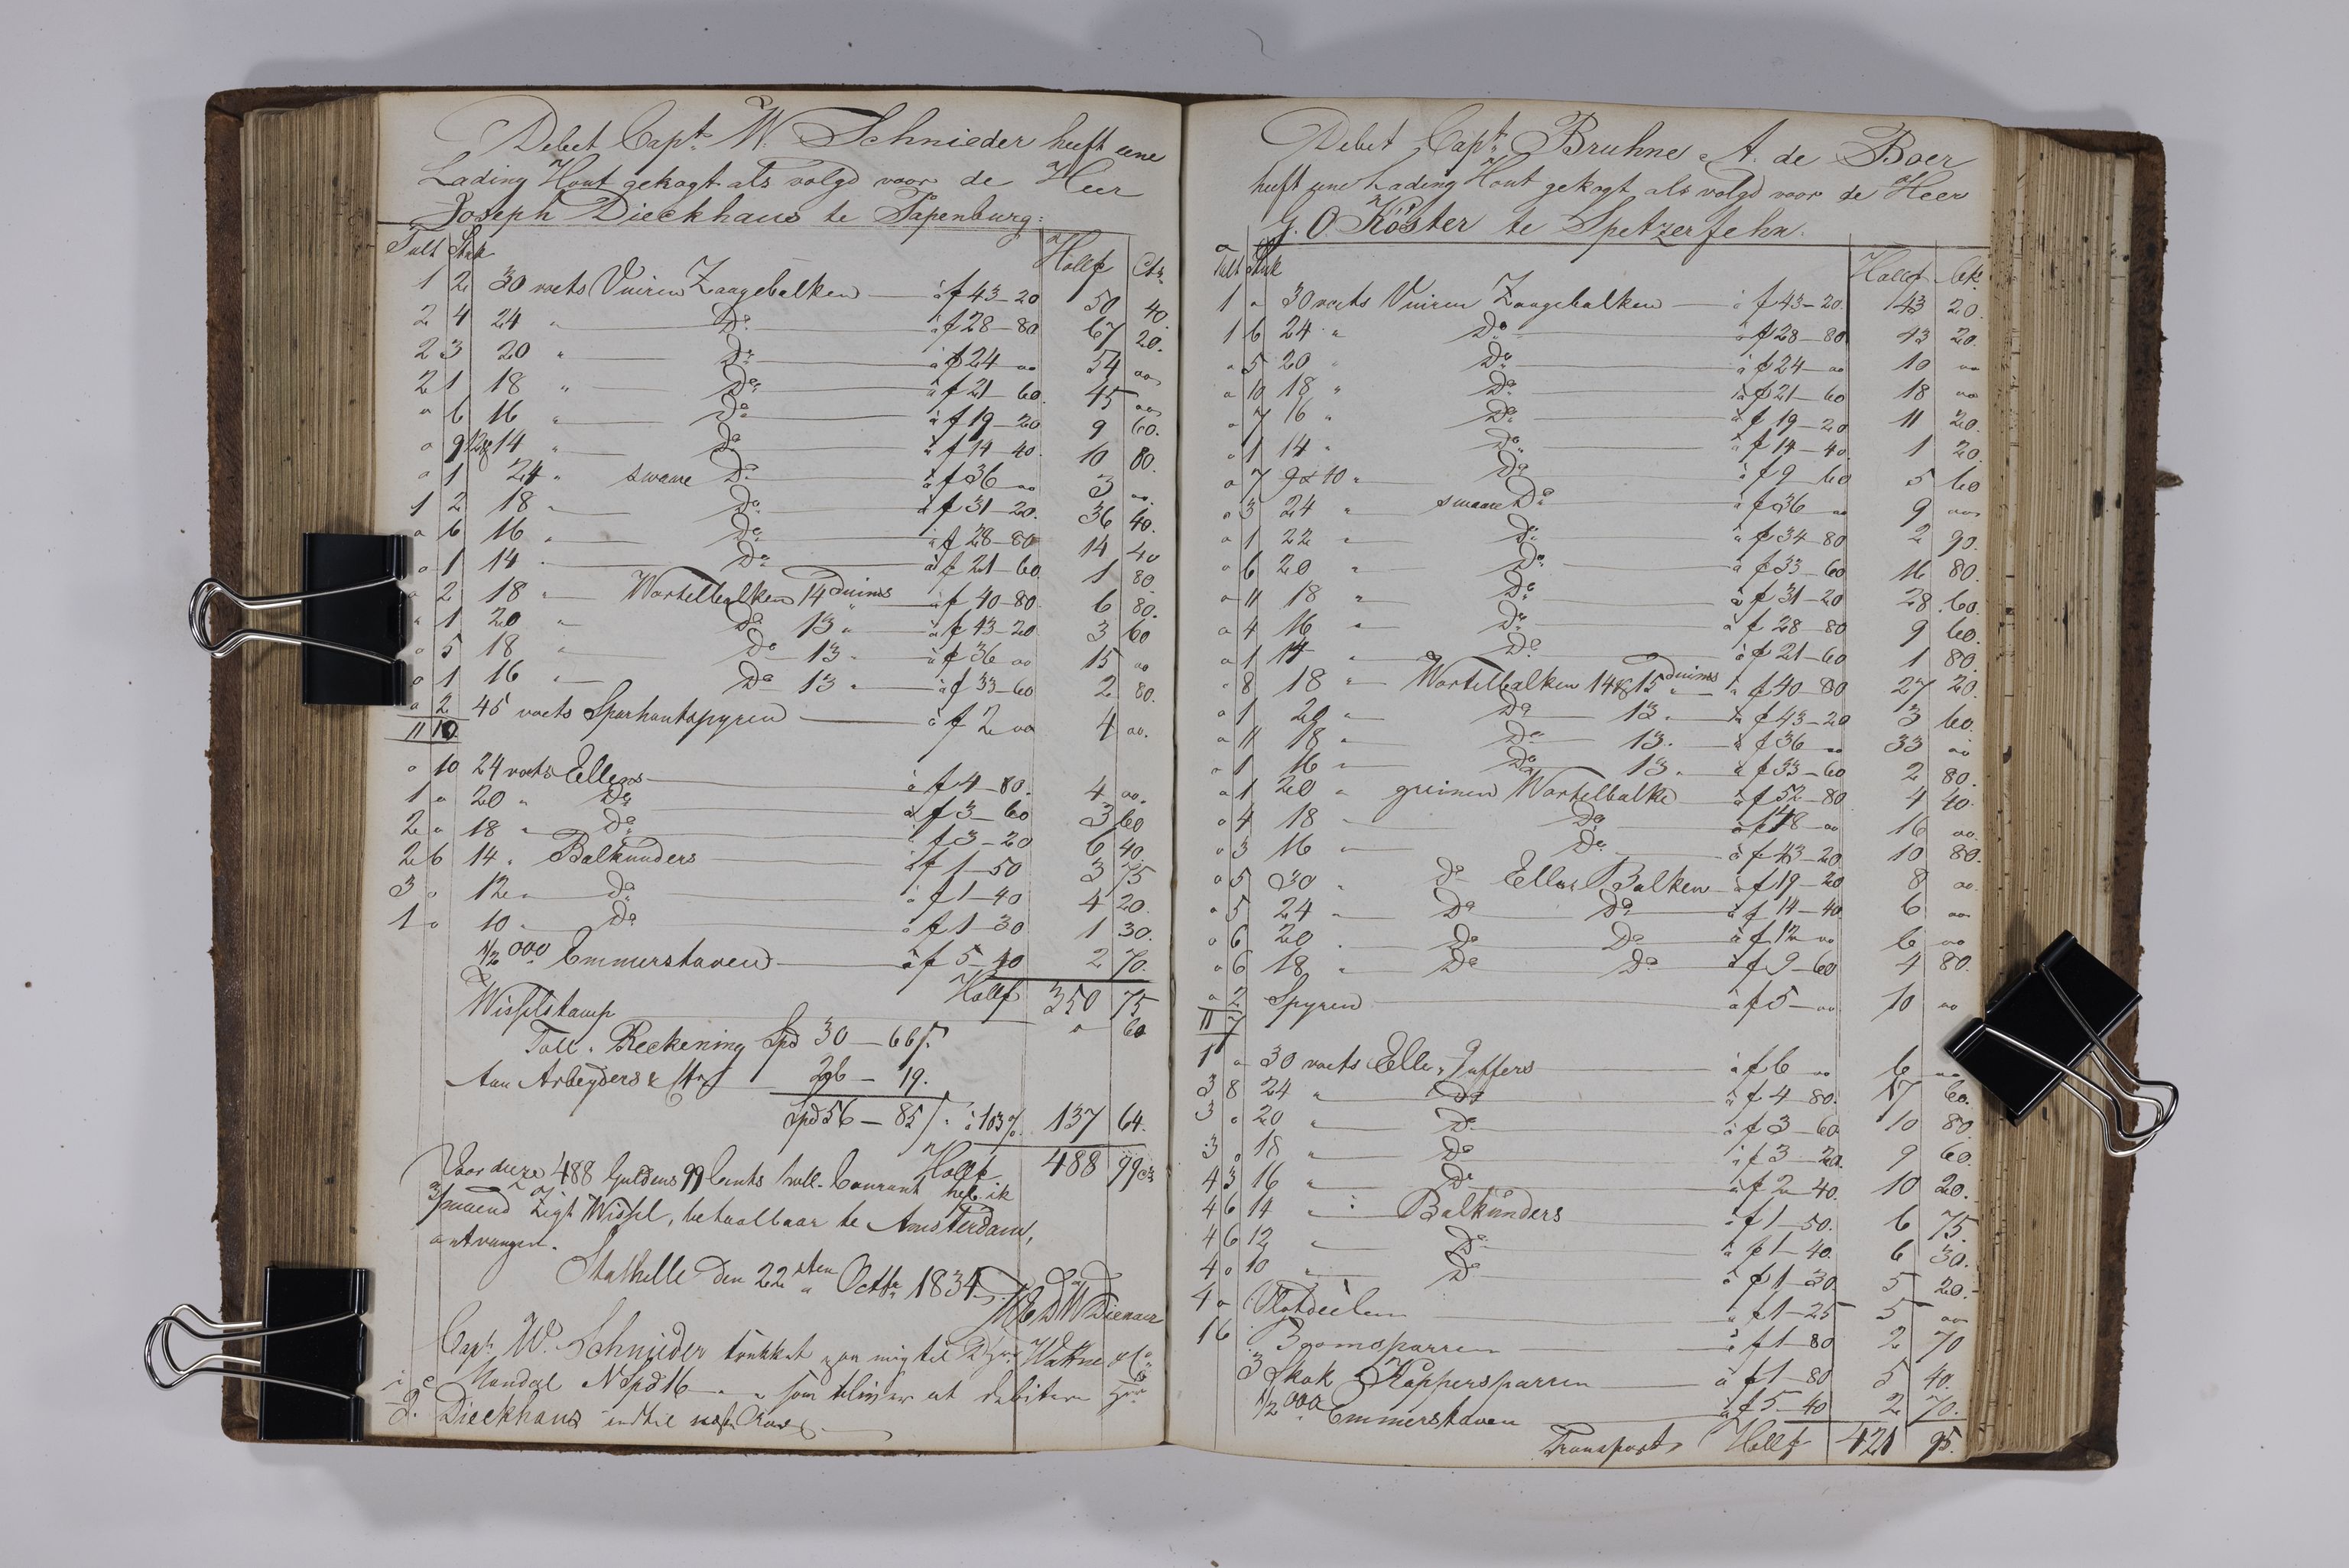 Debet Capt. W. Schnieder heeft eene
Lading Hout gekogt als volgd voor de Heer
Joseph Dieckhaus te Papenburg:
Tult Stuk Hollf Cts
1 2 30 voets Vuiren Zaagebalken à f 43-20 50 40.
2 4 24 " Do à f 28-80 67 20.
2 3 20 " Do à f 24 " 54 "
2 1 18 " Do à f 21-60. 45 "
" 6 16 " Do à f 19-20 9 60.
" 9 14 " Do à f 14-40. 10 80.
" 1 24 " swaare Do à f 36 " 3 "
1 2 18 " Do à f 31-20. 36 40.
" 6 16 " Do à f 28-80 14 40
" 1 14 " Do à f 21-60 1 80
" 2 18 " Wortelbalken 14 duims à f 40-80. 6 80.
" 1 20 " Do 13 " à f 43-20 3 60
" 5 18 " Do 13 " à f 36 " 15 "
" 1 16 " Do 13 " à f 33-60 2 80.
" 2 45 voets Sparhautspyren à f 2 " 4 "
11 10.
" 10 24 voets Ellens à f 4-80. 4 "
1 " 20 " Do à f 3-60 3 60
2 " 18 " Do à f 3-20 6 40.
2 6 14 " Balkunders à f 1-50 3 75
3 " 12 " Do à f 1-40 4 20.
1 " 10 " Do à f 1-30 1 30.
1/2 000 Emmerstaven à f 5-40 2 70.
Hollf 350 75
Wisselstamp " 60
Toll. Reckening Spd 30-66
Aan Arbeyders & 26-19.
Spd 56-85 à 103 % 137 64.
Hollf 488 99 cs
Voor deeze 488 Guldens 99 Cents holl. Courant heb ik
3/maend Zigt Wissel, betaalbaar te Amsterdam,
ontvangen.
Stathelle den 22sten Octbr. 1834
UEDWDienaar
Capt. W. Schnieder trekket paa mig til
Mandal Spd 16 som bliver at debitere
Dieckhaus indtil
Debet Capt. Bruhne A. de Boer
heeft eene Lading Hout gekogt als volgd voor de Heer
G. O. Köster te Spetzerfehn.
Tult Stuk Hollf Cts
1 " 30 voets Vuiren Zaagebalken à f 43-20. 43 20.
1 6 24 " Do à f 28-80 43 20.
" 5 20 " Do à f 24 " 10 "
" 10 18 " Do à f 21-60 18 "
" 7 16 " Do à f 19-20 11 20.
" 1 14 " Do à f 14-40 1 20.
" 7 9 & 10 " Do à f 9-60 5 60
" 3 24 " swaare Do à f 36 " 9 "
" 1 22 " Do à f 34-80 2 90.
" 6 20 " Do à f 33-60 16 80.
" 11 18 " Do à f 31-20 28 60.
" 4 16 " Do à f 28-80 9 60.
" 1 14 " Do à f 21-60 1 80.
" 8 18 " Wortelbalken 14 & 15 duims à f 40-80 27 20.
" 1 20 " Do 13 " à f 43-20 3 60.
" 11 18 " Do 13 " à f 36 " 33 "
" 1 16 " Do 13 " à f 33-60 2 80.
" 1 20 " greinen Wortelbalke à f 52-80 4 40.
" 4 18 " Do à f 48 " 16 "
" 3 16 " Do à f 43-20 10 80.
" 5 30 " Do Ellas Balken à f 19-20 8 "
" 5 24 " Do Do à f 14-40 6 "
" 6 20 " Do Do à f 12 " 6 "
" 6 18 " Do Do à f 9-60 4 80.
" 2 Spyren à f 5 " 10 "
11 7
1 " 30 voets Elle, Juffers à f 6 " 6 "
3 8 24 " Do à f 4-80. 17 60.
3 " 20 " Do à f 3-60 10 80
3 " 18 " Do à f 3-20. 9 60.
4 3 16 " Do à f 2-40. 10 20.
4 6 14 " Balkunders à f 1-50. 6 75.
4 6 12 " Do à f 1-40. 6 30.
4 " 10 " Do à f 1-30 5 20.
4 " Vlotdeelen à f 1-25 5 "
1 6 Boomsparren à f 1-80 2 70
3 Skok Kappersparren à f 1-80 5 40.
1/2 000 Emmerstaven à f 5-40 2 70.
Transport Hollf 421 95.